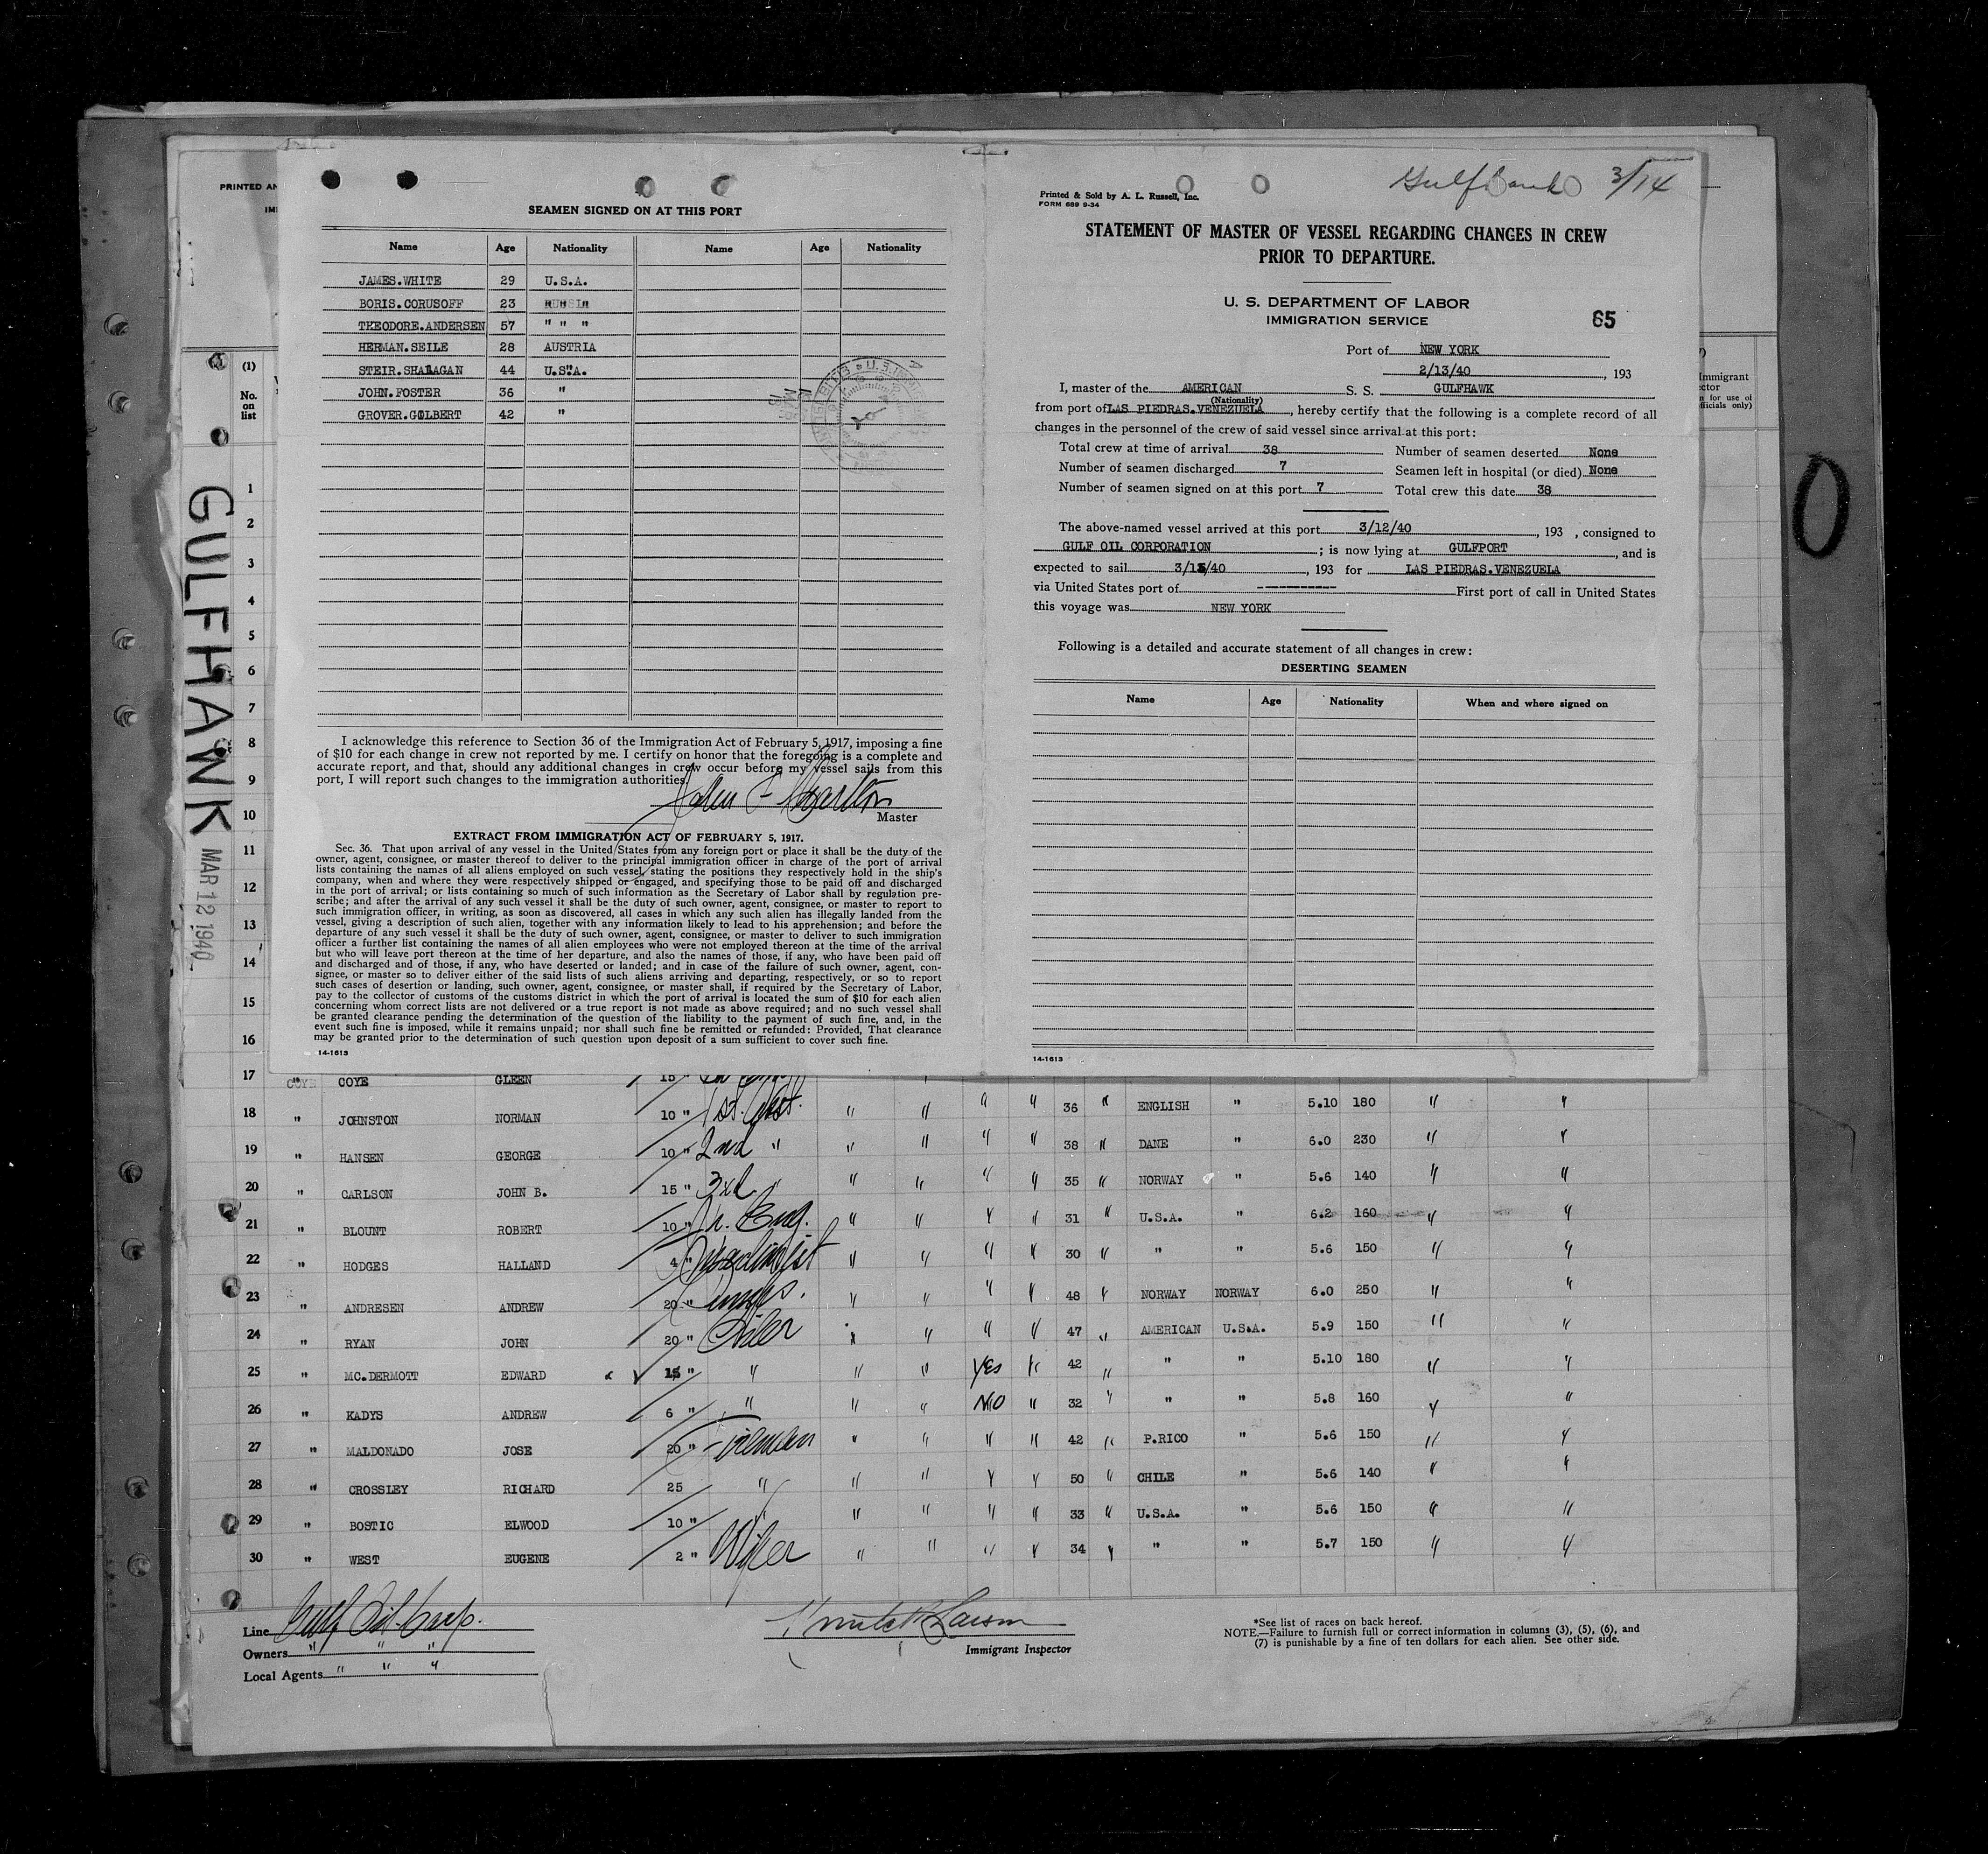 PRINTED AN
IM
SEAMEN SIGNED ON AT THIS PORT
Name Age Nationality Name Age Nationality
JAMES.WHITE 29 U.S.A.
BORIS.CORUSOFF 23
THEODORE.ANDERSEN 57 " " "
HERMAN.SEILE 28 AUSTRIA
STEIR.SHALAGAN 44 U.S.A.
JOHN.FOSTER 36 "
GROVER.GILBERT 42 "
I acknowledge this reference to Section 36 of the Immigration Act of February 5, 1917, imposing a fine
of $10 for each change in crew not reported by me. I certify on honor that the foregoing is a complete and
accurate report, and that, should any additional changes in crew occur before my vessel sails from this
port, I will report such changes to the immigration authorities.
Master
EXTRACT FROM IMMIGRATION ACT OF FEBRUARY 5, 1917.
Sec. 36. That upon arrival of any vessel in the United States from any foreign port or place it shall be the duty of the
owner, agent, consignee, or master thereof to deliver to the principal immigration officer in charge of the port of arrival
lists containing the names of all aliens employed on such vessel, stating the positions they respectively hold in the ship's
company, when and where they were respectively shipped or engaged, and specifying those to be paid off and discharged
in the port of arrival; or lists containing so much of such information as the Secretary of Labor shall by regulation pre-
scribe; and after the arrival of any such vessel it shall be the duty of such owner, agent, consignee, or master to report to
such immigration officer, in writing, as soon as discovered, all cases in which any such alien has illegally landed from the
vessel, giving a description of such alien, together with any information likely to lead to his apprehension; and before the
departure of any such vessel it shall be the duty of such owner, agent, consignee, or master to deliver to such immigration
officer a further list containing the names of all alien employees who were not employed thereon at the time of the arrival
but who will leave port thereon at the time of her departure, and also the names of those, if any, who have been paid off
and discharged and of those, if any, who have deserted or landed; and in case of the failure of such owner, agent, con-
signee, or master so to deliver either of the said lists of such aliens arriving and departing, respectively, or so to report
such cases of desertion or landing, such owner, agent, consignee, or master shall, if required by the Secretary of Labor,
pay to the collector of customs of the customs district in which the port of arrival is located the sum of $10 for each alien
concerning whom correct lists are not delivered or a true report is not made as above required; and no such vessel shall
be granted clearance pending the determination of the question of the liability to the payment of such fine, and, in the
event such fine is imposed, while it remains unpaid; nor shall such fine be remitted or refunded: Provided, That clearance
may be granted prior to the determination of such question upon deposit of a sum sufficient to cover such fine.
14-1613
Gulfhawk 3/14
Printed & Sold by A. L. Russell, Inc.
FORM 689 9-34
STATEMENT OF MASTER OF VESSEL REGARDING CHANGES IN CREW
PRIOR TO DEPARTURE.
U. S. DEPARTMENT OF LABOR
IMMIGRATION SERVICE
65
Port of NEW YORK
2/13/40, 193
I, master of the AMERICAN S. S. GULFHAWK
(Nationality)
from port of LAS PIEDRAS.VENEZUELA, hereby certify that the following is a complete record of all
changes in the personnel of the crew of said vessel since arrival at this port:
Total crew at time of arrival 38 Number of seamen deserted None
Number of seamen discharged 7 Seamen left in hospital (or died) None
Number of seamen signed on at this port 7 Total crew this date 38
The above-named vessel arrived at this port 3/12/40, 193 , consigned to
GULF OIL CORPORATION; is now lying at GULFPORT, and is
expected to sail 3/13/40, 193 for LAS PIEDRAS.VENEZUELA
via United States port of ---------- First port of call in United States
this voyage was NEW YORK
Following is a detailed and accurate statement of all changes in crew:
DESERTING SEAMEN
Name Age Nationality When and where signed on
14-1613
GULFHAWK
MAR 12 1940
(1)
No.
on
list
1
2
3
4
5
6
7
8
9
10
11
12
13
14
15
16
Immigrant
ctor
n for use of
fficials only)
0
17 " COYE GLEEN 15 "
18 " JOHNSTON NORMAN 10 " 1st. Asst. " " " " 36 " ENGLISH " 5.10 180 " "
19 " HANSEN GEORGE 10 " 2nd " " " " " 38 " DANE " 6.0 230 " "
20 " CARLSON JOHN B. 15 " 3rd " " " " " 35 " NORWAY " 5.6 140 " "
21 " BLOUNT ROBERT 10 " Jr. Eng. " " " " 31 " U.S.A. " 6.2 160 " "
22 " HODGES HALLAND 4 " Machinist " " " " 30 " " " 5.6 150 " "
23 " ANDRESEN ANDREW 20 " Pumps. " " " " 48 " NORWAY NORWAY 6.0 250 " "
24 " RYAN JOHN 20 " Oiler " " " " 47 " AMERICAN U.S.A. 5.9 150 " "
25 " MC.DERMOTT EDWARD 15 " " " " Yes " 42 " " " 5.10 180 " "
26 " KADYS ANDREW 6 " " " " NO " 32 " " " 5.8 160 " "
27 " MALDONADO JOSE 20 " Fireman " " " " 42 " P.RICO " 5.6 150 " "
28 " CROSSLEY RICHARD 25 " " " " " 50 " CHILE " 5.6 140 " "
29 " BOSTIC ELWOOD 10 " " " " " " 33 " U.S.A. " 5.6 150 " "
30 " WEST EUGENE 2 " Wiper " " " " 34 " " " 5.7 150 " "
Line Gulf Oil Corp.
Owners " " "
Local Agents " " "
Immigrant Inspector
*See list of races on back hereof.
NOTE.—Failure to furnish full or correct information in columns (3), (5), (6), and
(7) is punishable by a fine of ten dollars for each alien. See other side.